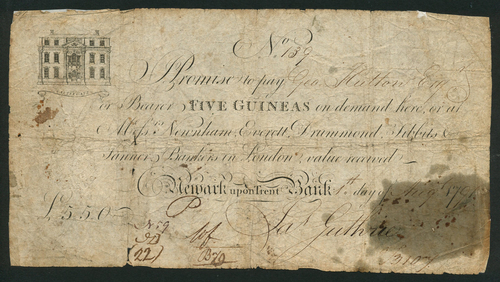 No. 139
I Promise to pay Geo. Hutton Esq
or Bearer FIVE GUINEAS on demand here, or at
Messrs. Newnham, Everett, Drummond, Tibbits &
Tanner, Bankers in London, value received
Newark upon Trent Bank day of
£5.5.0
P
Jas. Guthrie
No. 9
22
B70